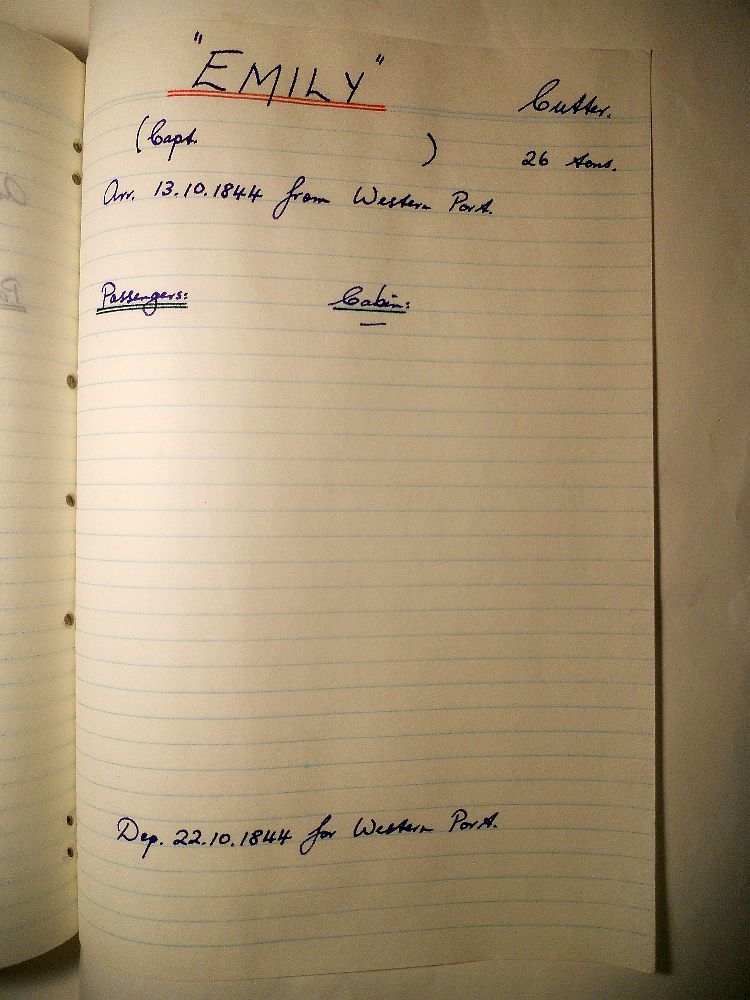 "EMILY"
Cutter.
(Capt. )
26 tons.
Arr. 13.10.1844 from Western Port.
Passengers:
Cabin:
—
Dep. 22.10.1844 for Western Port.